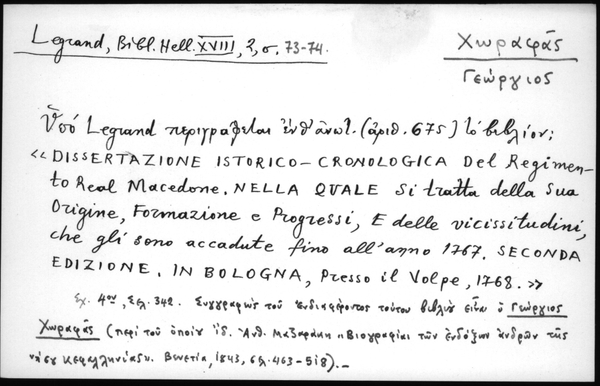 Legrand, Bibl. Hell. XVIII, 2, σ. 73-74.
Χωραφᾶς
Γεώργιος
Ὑπό Legrand περιγράφεται ἐνθ' ἀνωτ. (ἀριθ. 675) τό βιβλίον:
« DISSERTAZIONE ISTORICO-CRONOLOGICA Del Regimen-
to Real Macedone. NELLA QUALE si tratta della Sua
Origine, Formazione e Progressi, E delle vicissitudini,
che gli sono accadute fino all'anno 1767. SECONDA
EDIZIONE. IN BOLOGNA, Presso il Volpe, 1768. »
Σχ. 4ον, Σελ. 342. Συγγραφεὺς τοῦ ἐνδιαφέροντος τούτου βιβλίου εἶναι ὁ Γεώργιος
Χωραφᾶς (περὶ τοῦ ὁποίου ἰδ. Ἀνθ. Μαζαράκη « Βιογραφίαι τῶν ἐνδόξων ἀνδρῶν τῆς
νήσου Κεφαλληνίας». Βενετία, 1843, σελ. 463-518). —